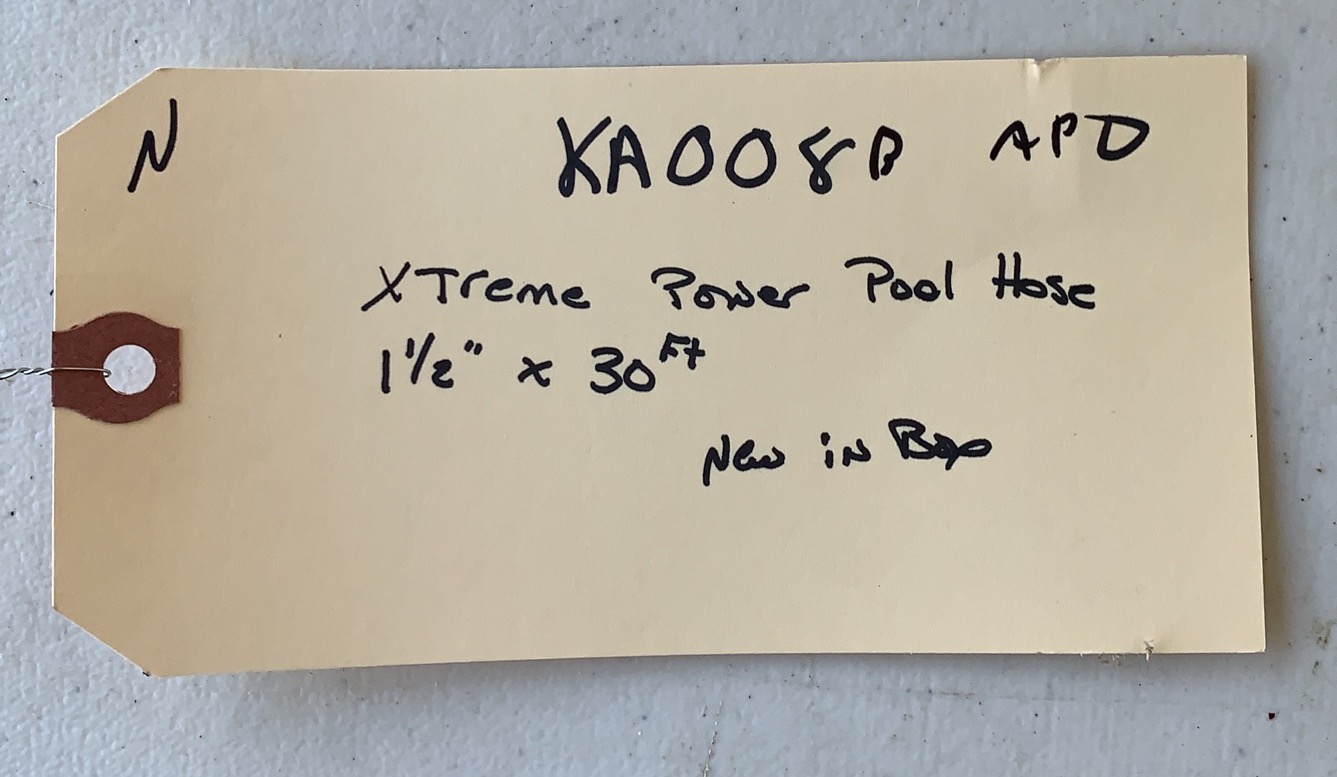 N KA008B APD
XTreme Power Pool Hose
1 1/2" x 30 Ft
New in Box